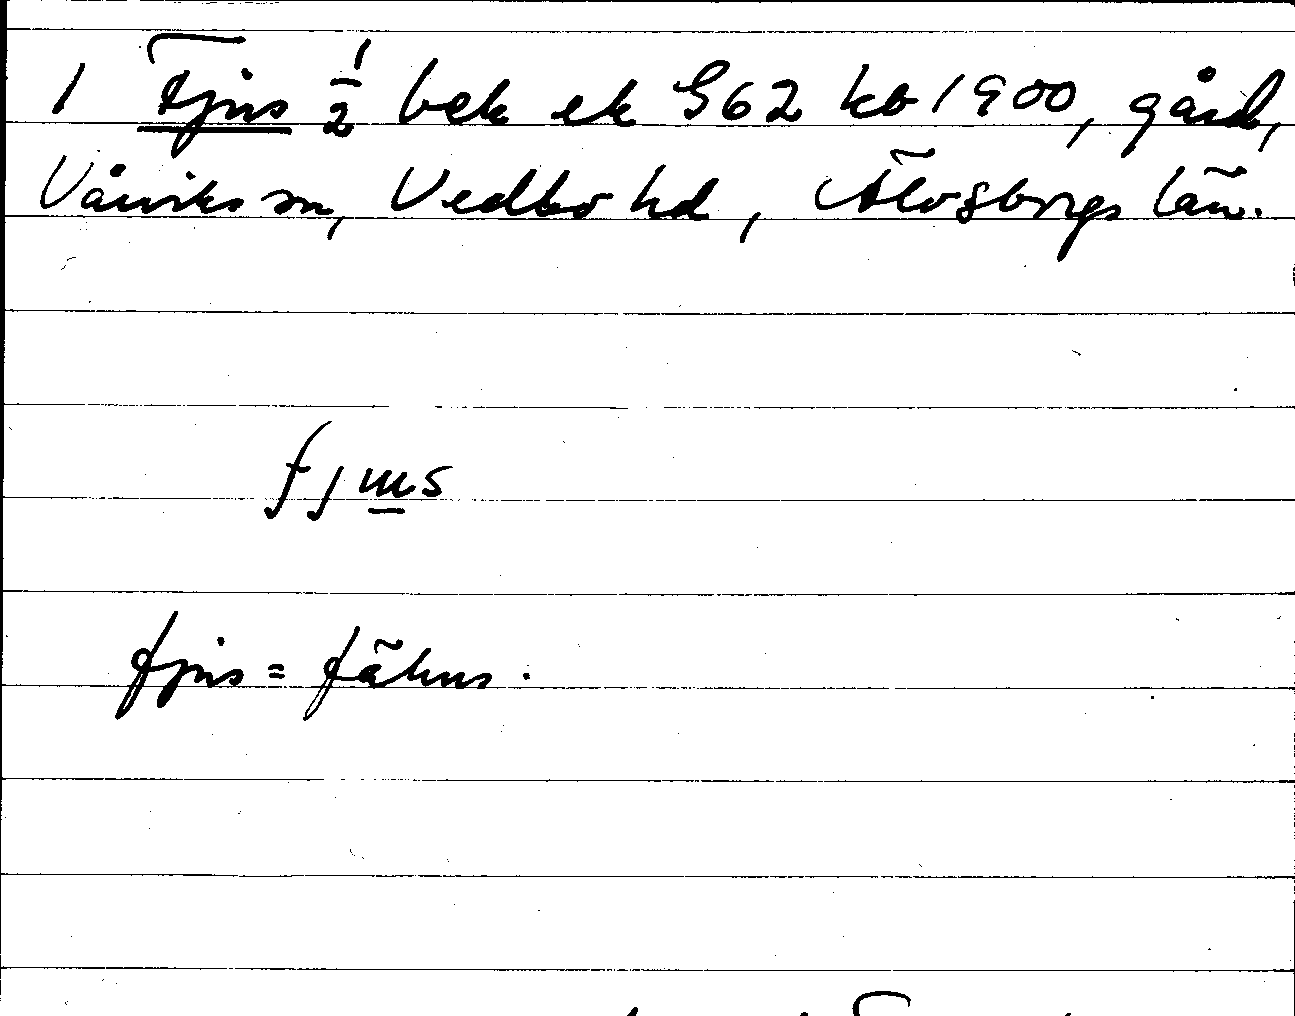 1 Fjus ½ bek ek G62 kb 1900, gård,
Vårviks sn, Vedbo hd, Älvsborgs län.
fjus
fjus = fähus.